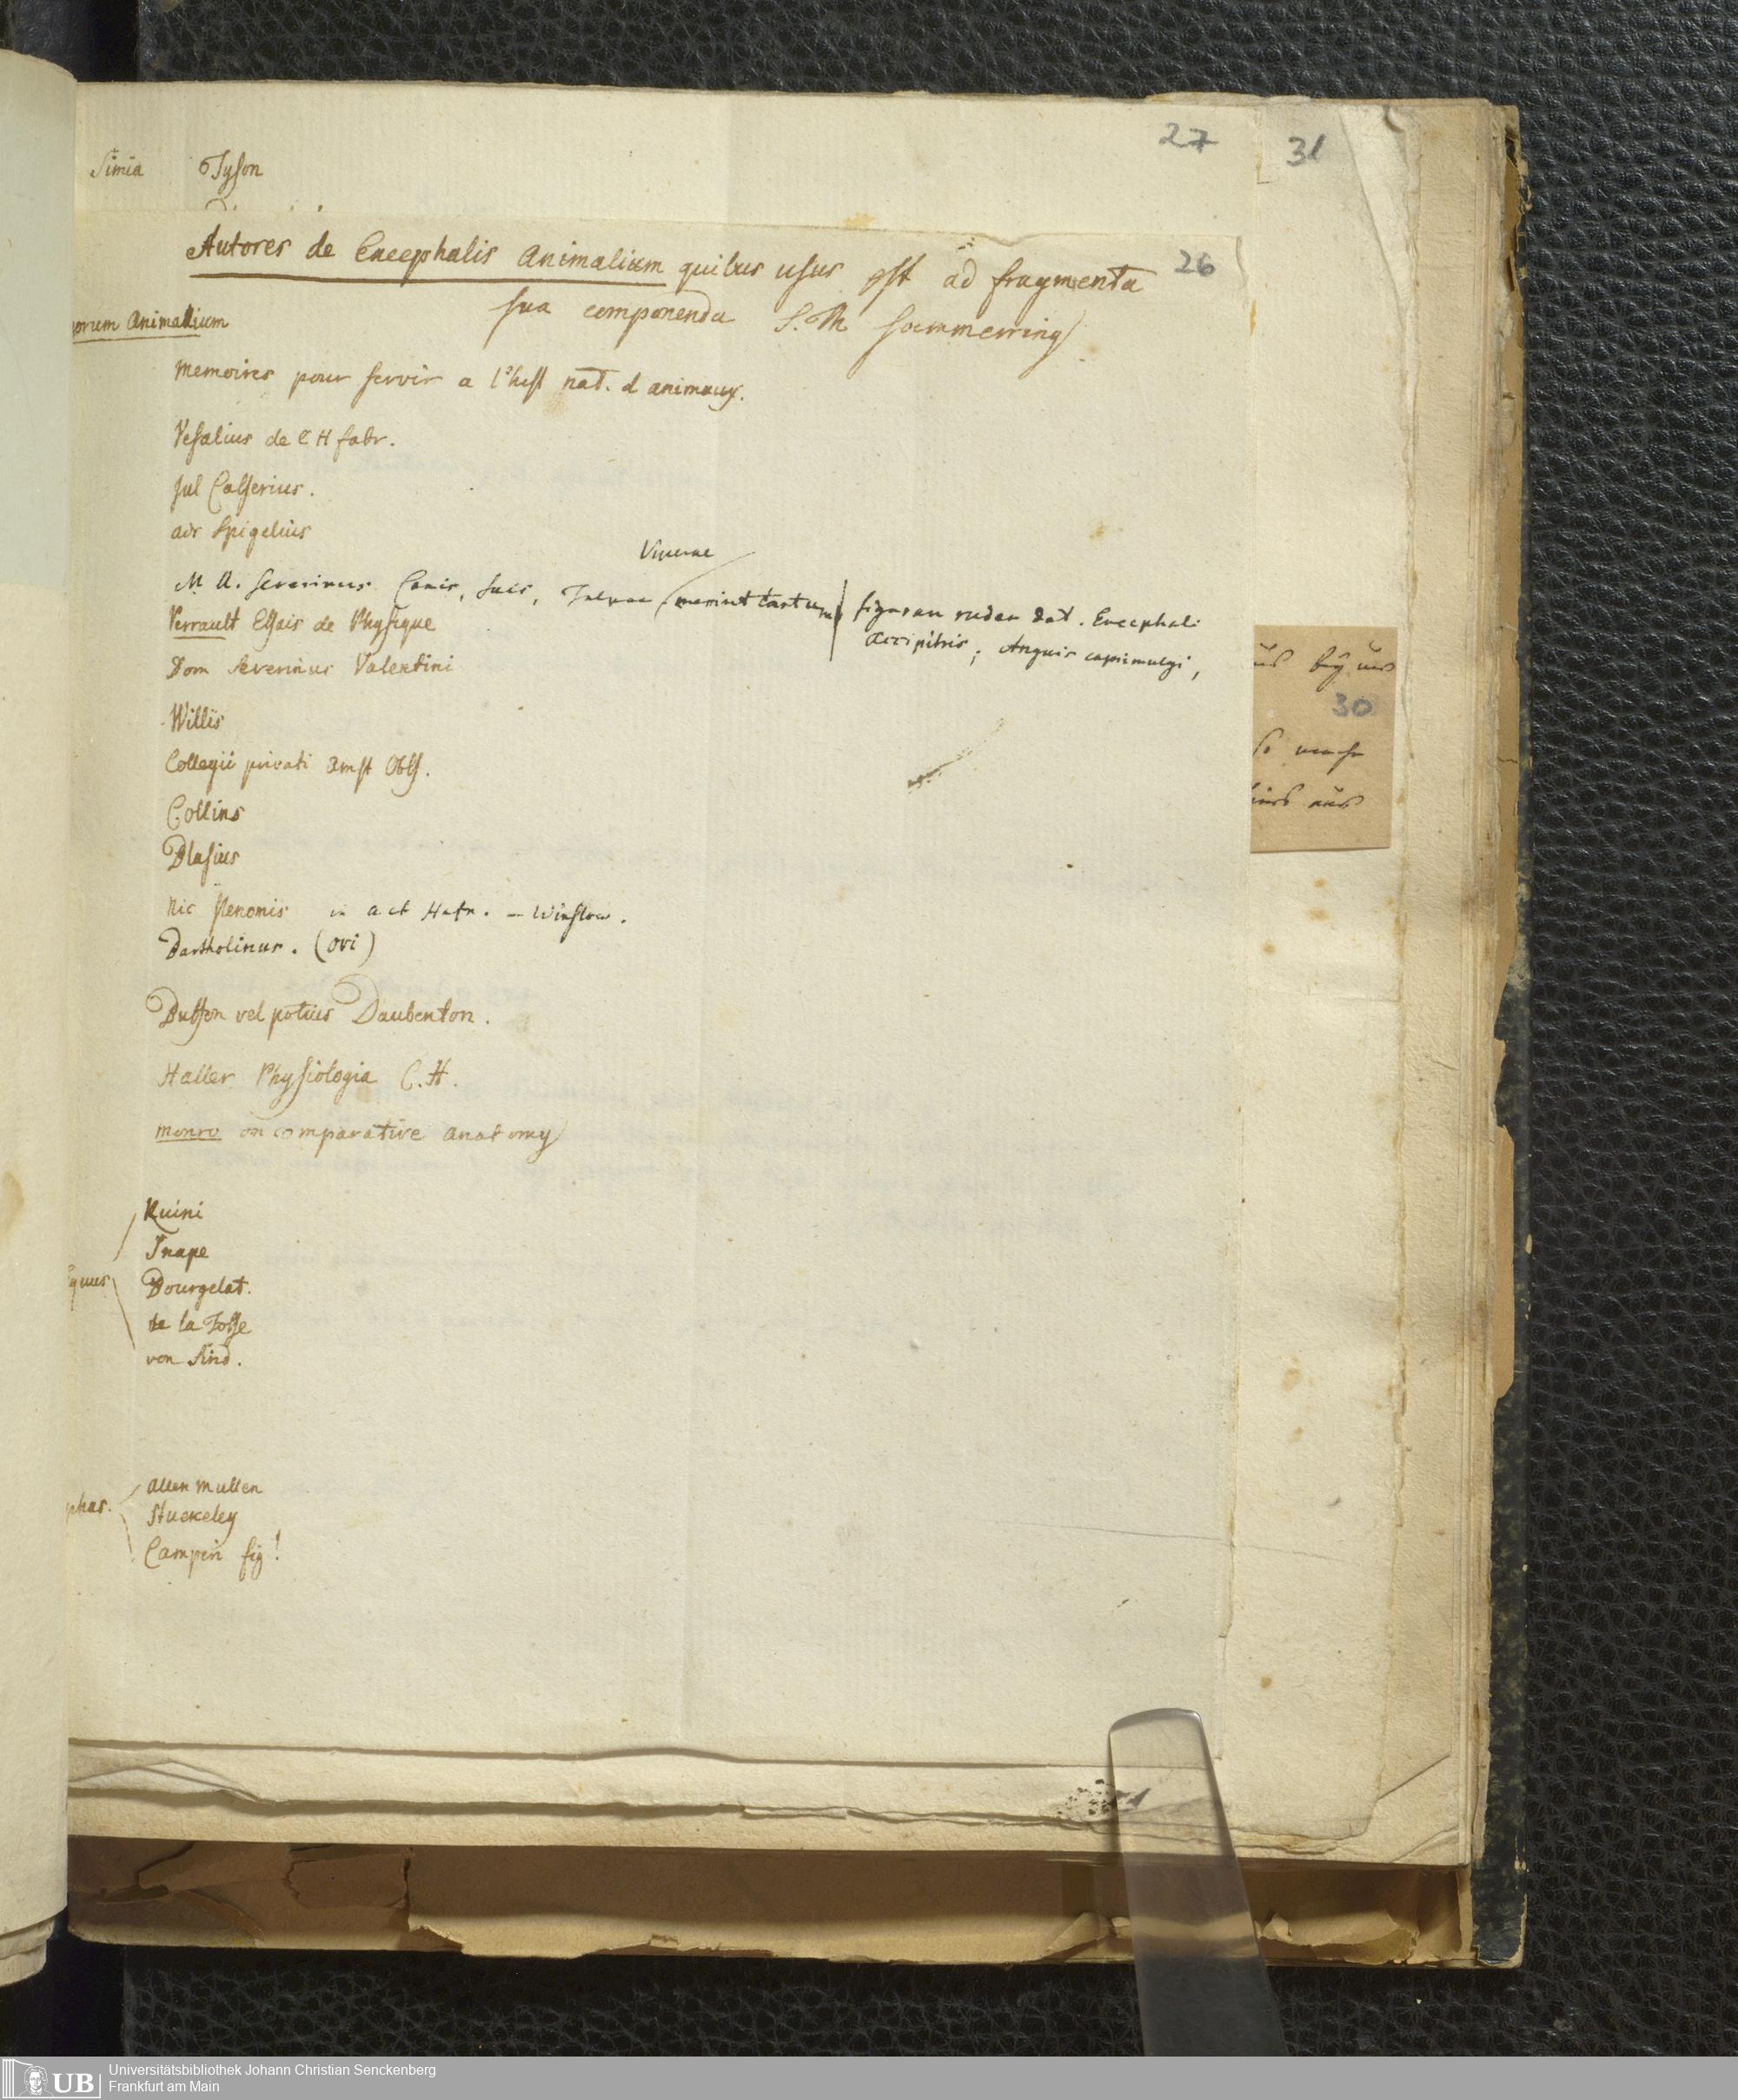 27
31
Simia Tyson
Autores de Encephalis Animalium quibus usus est ad fragmenta
26
sua componenda S. Th Soemmerring
orum Animalium
Memoires pour servir a l'hist nat. d animaux.
Vesalius de C H fabr.
Jul Casserius.
adr Spigelius
Viverrae
M. A. Severinus Canis, suis, Talpae (meminit tantum) figuram rudem dat. Encephali
Accipitris, Anguis caprimulgi,
Perrault Essais de Physique
Dom Severinus Valentini
Willis
Collegii privati Amst Obss.
Collins
Blasius
Nic Stenonis in act Hafn. – Winslow.
Bartholinus. (ovi)
Buffon vel potius Daubenton.
Haller Physiologia C. H.
Monro on comparative Anatomy
Ruini
Snape
quus
Bourgelat.
de la Fosse
von Sind.
Allen Mullen
phas.
Stuckeley
Camperi fig!
30
UB
Universitätsbibliothek Johann Christian Senckenberg
Frankfurt am Main